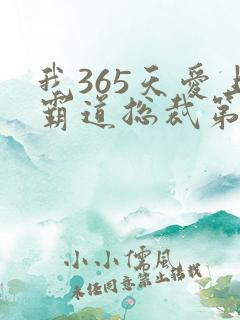 我365天爱上
霸道总裁第
小小儒风
未经同意禁止转载